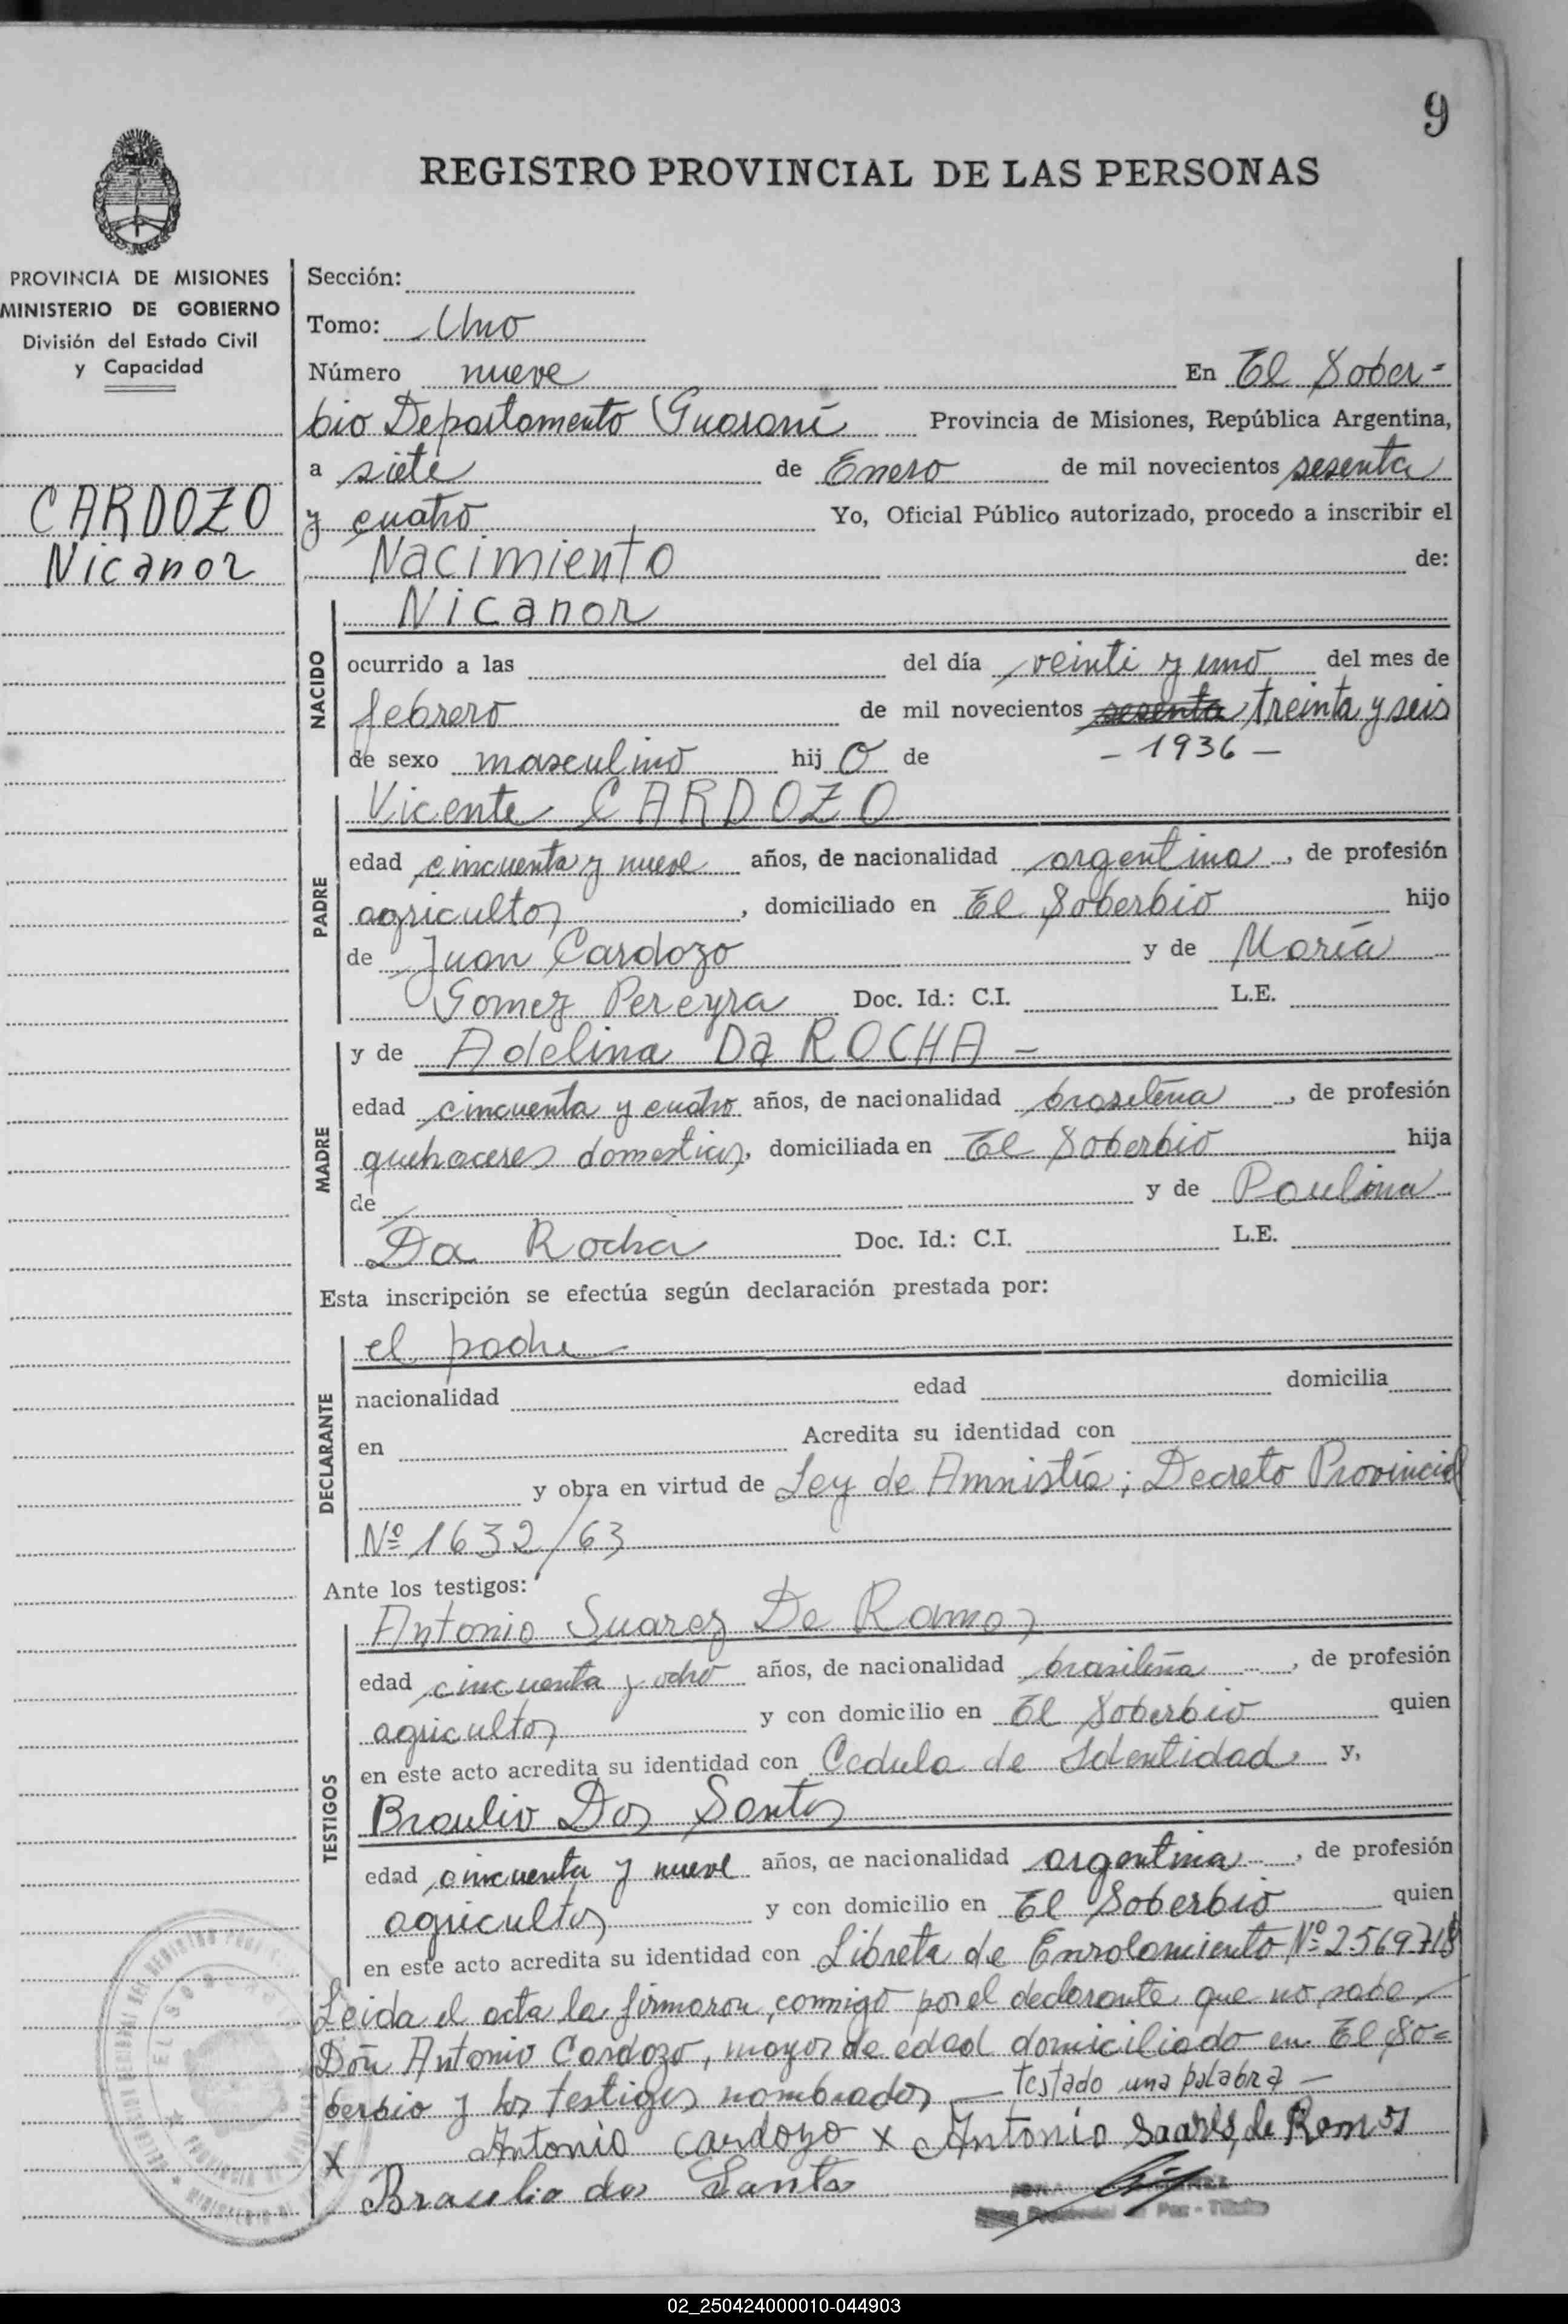 9
REGISTRO PROVINCIAL DE LAS PERSONAS
PROVINCIA DE MISIONES
MINISTERIO DE GOBIERNO
División del Estado Civil
y Capacidad
CARDOZO
Nicanor
Sección:
Tomo: Uno
Número nueve En El Sober-
bio Departamento Guaraní Provincia de Misiones, República Argentina,
a siete de Enero de mil novecientos sesenta
y cuatro Yo, Oficial Público autorizado, procedo a inscribir el
Nacimiento de:
NACIDO
Nicanor
ocurrido a las del día veinti y uno del mes de
febrero de mil novecientos sesenta treinta y seis
de sexo masculino hij o de - 1936 -
PADRE
Vicente CARDOZO
edad cincuenta y nueve años, de nacionalidad argentina, de profesión
agricultor, domiciliado en El Soberbio hijo
de Juan Cardozo y de María
Gomez Pereyra Doc. Id.: C.I. L.E.
MADRE
y de Adelina Da ROCHA -
edad cincuenta y cuatro años, de nacionalidad brasileña, de profesión
quehaceres domesticos, domiciliada en El Soberbio hija
de y de Paulina
Da Rocha Doc. Id.: C.I. L.E.
Esta inscripción se efectúa según declaración prestada por:
DECLARANTE
el padre
nacionalidad edad domicilia
en Acredita su identidad con
y obra en virtud de Ley de Amnistía; Decreto Provincial
Nº 1632/63
Ante los testigos:
TESTIGOS
Antonio Suarez De Ramos
edad cincuenta y ocho años, de nacionalidad brasileña, de profesión
agricultor y con domicilio en El Soberbio quien
en este acto acredita su identidad con Cedula de Identidad y,
Braulio Dos Santos
edad cincuenta y nueve años, de nacionalidad argentina, de profesión
agricultor y con domicilio en El Soberbio quien
en este acto acredita su identidad con Libreta de Enrolamiento Nº 2569718
Leida el acta la firmaron, conmigo por el declarante que no sabe
Don Antonio Cardozo, mayor de edad domiciliado en El So=
berbio y los testigos nombrados — testado una palabra —
X Antonio Cardozo X Antonio Saares de Remos
Braulio dos Santos
02_250424000010-044903